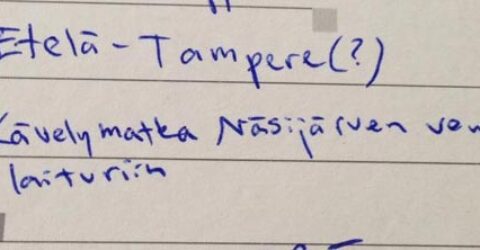 Etelä-Tampere(?)
Kävelymatka Näsijärven ven
laituriin